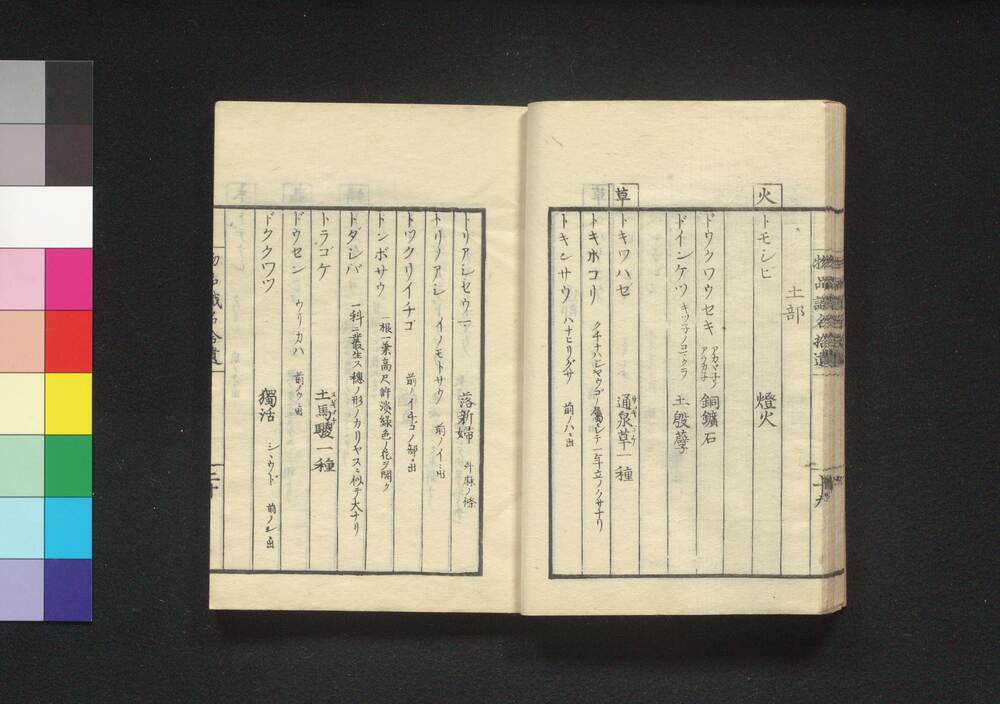 火
トモシビ 燈火
土部
ドウクワウセキ アカマ子ノアラカ子 銅鑛石
ドインケツ キツ子ノコマクラ 土殷孽
草
トキワハゼ 通泉草一種
トキホコリ クチナハジヤウゴノ屬ニシテ一年立ノクサナリ
トキンサウ ハナヒリグサ 前ノハニ出
物品識名拾遺
十九
トリアシセウマ 落新婦 升麻ノ條
トリノアシ イノモトサウ 前ノイニ出
トツクリイチゴ 前ノイチゴノ部ニ出
トンボサウ 一根一葉高尺許淡綠色ノ花ヲ開ク
トダシバ 一科ニ叢生ス穗ノ形ノカリヤスニ似テ大ナリ
トラゴケ 土馬騣一種
ドウセン ウリカハ 前ノウニ出
ドククワツ 獨活 シヽウド 前ノシニ出
物品識名拾遺
二十